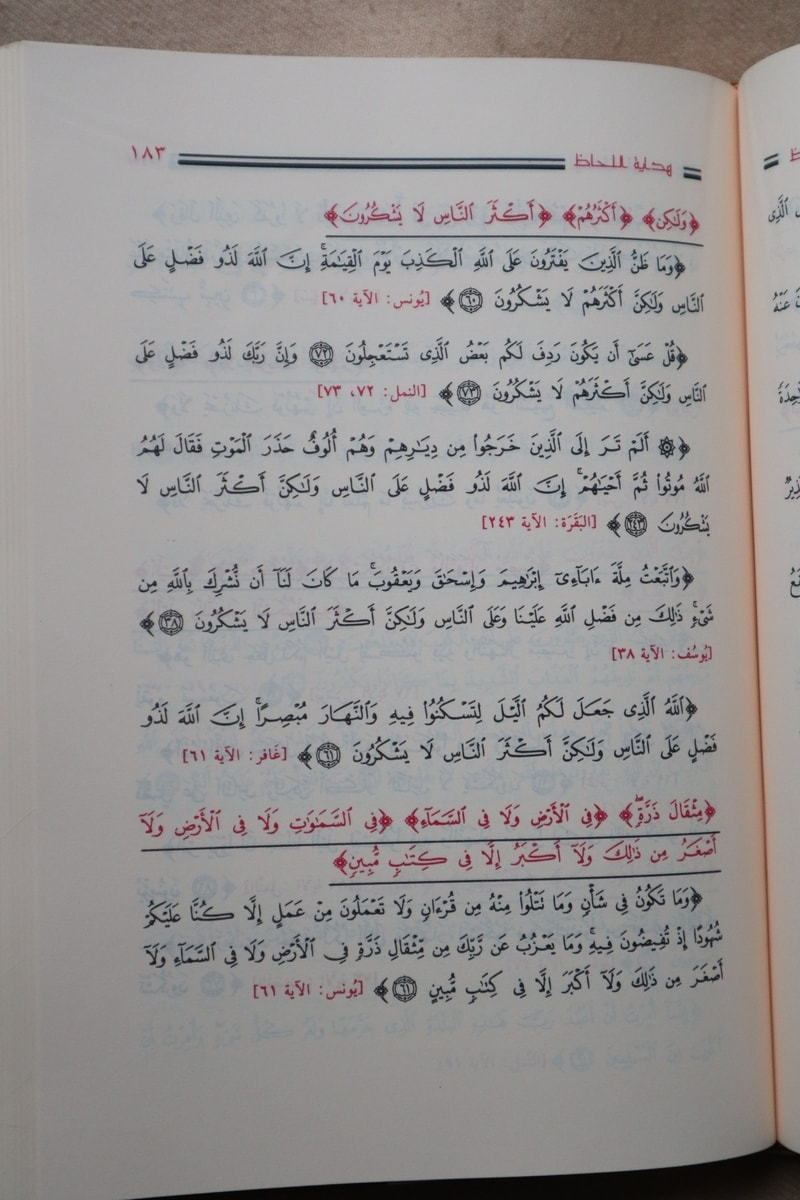 هداية اللحاظ ١٨٣
﴿وَلَٰكِن﴾ ﴿أَكْثَرُهُمْ﴾ ﴿أَكْثَرَ النَّاسِ لَا يَشْكُرُونَ﴾
﴿وَمَا ظَنُّ الَّذِينَ يَفْتَرُونَ عَلَى اللَّهِ الْكَذِبَ يَوْمَ الْقِيَٰمَةِ ۗ إِنَّ اللَّهَ لَذُو فَضْلٍ عَلَى
النَّاسِ وَلَٰكِنَّ أَكْثَرَهُمْ لَا يَشْكُرُونَ ٦٠﴾ [يُونس: الآية ٦٠]
﴿قُلْ عَسَىٰٓ أَن يَكُونَ رَدِفَ لَكُم بَعْضُ الَّذِى تَسْتَعْجِلُونَ ٧٢ وَإِنَّ رَبَّكَ لَذُو فَضْلٍ عَلَى
النَّاسِ وَلَٰكِنَّ أَكْثَرَهُمْ لَا يَشْكُرُونَ ٧٣﴾ [النمل: ٧٢، ٧٣]
﴿۞ أَلَمْ تَرَ إِلَى الَّذِينَ خَرَجُوا۟ مِن دِيَٰرِهِمْ وَهُمْ أُلُوفٌ حَذَرَ الْمَوْتِ فَقَالَ لَهُمُ
اللَّهُ مُوتُوا۟ ثُمَّ أَحْيَٰهُمْ ۚ إِنَّ اللَّهَ لَذُو فَضْلٍ عَلَى النَّاسِ وَلَٰكِنَّ أَكْثَرَ النَّاسِ لَا
يَشْكُرُونَ ٢٤٣﴾ [البَقَرَة: الآية ٢٤٣]
﴿وَاتَّبَعْتُ مِلَّةَ ءَابَآءِىٓ إِبْرَٰهِيمَ وَإِسْحَٰقَ وَيَعْقُوبَ ۚ مَا كَانَ لَنَآ أَن نُّشْرِكَ بِاللَّهِ مِن
شَىْءٍ ۚ ذَٰلِكَ مِن فَضْلِ اللَّهِ عَلَيْنَا وَعَلَى النَّاسِ وَلَٰكِنَّ أَكْثَرَ النَّاسِ لَا يَشْكُرُونَ ٣٨﴾
[يُوسُف: الآية ٣٨]
﴿اللَّهُ الَّذِى جَعَلَ لَكُمُ الَّيْلَ لِتَسْكُنُوا۟ فِيهِ وَالنَّهَارَ مُبْصِرًا ۚ إِنَّ اللَّهَ لَذُو
فَضْلٍ عَلَى النَّاسِ وَلَٰكِنَّ أَكْثَرَ النَّاسِ لَا يَشْكُرُونَ ٦١﴾ [غَافر: الآية ٦١]
﴿مِثْقَالَ ذَرَّةٍ ۖ﴾ ﴿فِى الْأَرْضِ وَلَا فِى السَّمَآءِ﴾ ﴿فِى السَّمَٰوَٰتِ وَلَا فِى الْأَرْضِ وَلَآ
أَصْغَرُ مِن ذَٰلِكَ وَلَآ أَكْبَرُ إِلَّا فِى كِتَٰبٍ مُّبِينٍ﴾
﴿وَمَا تَكُونُ فِى شَأْنٍ وَمَا تَتْلُوا۟ مِنْهُ مِن قُرْءَانٍ وَلَا تَعْمَلُونَ مِنْ عَمَلٍ إِلَّا كُنَّا عَلَيْكُمْ
شُهُودًا إِذْ تُفِيضُونَ فِيهِ ۚ وَمَا يَعْزُبُ عَن رَّبِّكَ مِن مِّثْقَالِ ذَرَّةٍ فِى الْأَرْضِ وَلَا فِى السَّمَآءِ وَلَآ
أَصْغَرَ مِن ذَٰلِكَ وَلَآ أَكْبَرَ إِلَّا فِى كِتَٰبٍ مُّبِينٍ ٦١﴾ [يُونس: الآية ٦١]